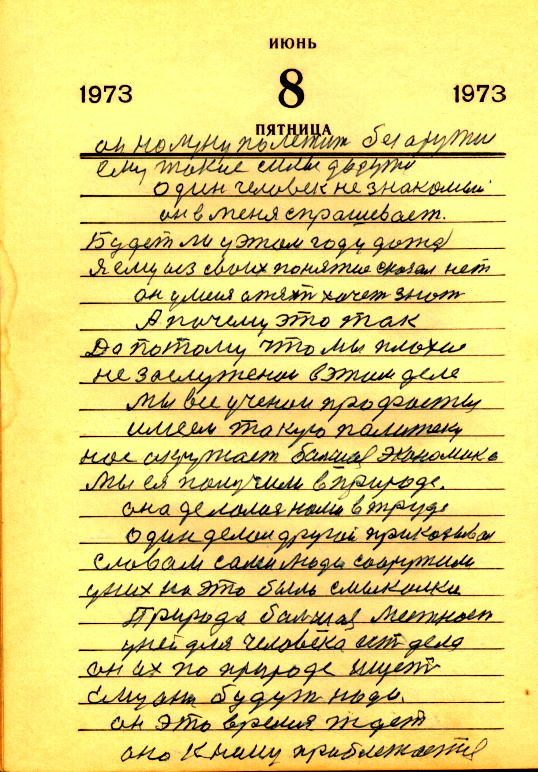 ИЮНЬ
1973 8 1973
ПЯТНИЦА
он на луну полетит без
ему такие силы дадути
один человек не знакомый
он в меня спрашевает.
Будет ли у этом году дожд
Я ему из своих понятие сказал нет
он у меня опять хочет знат
А почему это так
Да потому что мы плохие
не заслуженои в этим деле
мы все ученои
имеем такую палитеку
нас окружает балшая экономика
Мы ея получили в природе.
она делалая нами в труде
один делои другой приказывал
словам сами люди сооружили
у них на это была смикалка
Природа балшая местност
у ней для человека ест дела
он их по природе ищет
Ему они будут надо.
он это время ждет
оно к нему приблежается